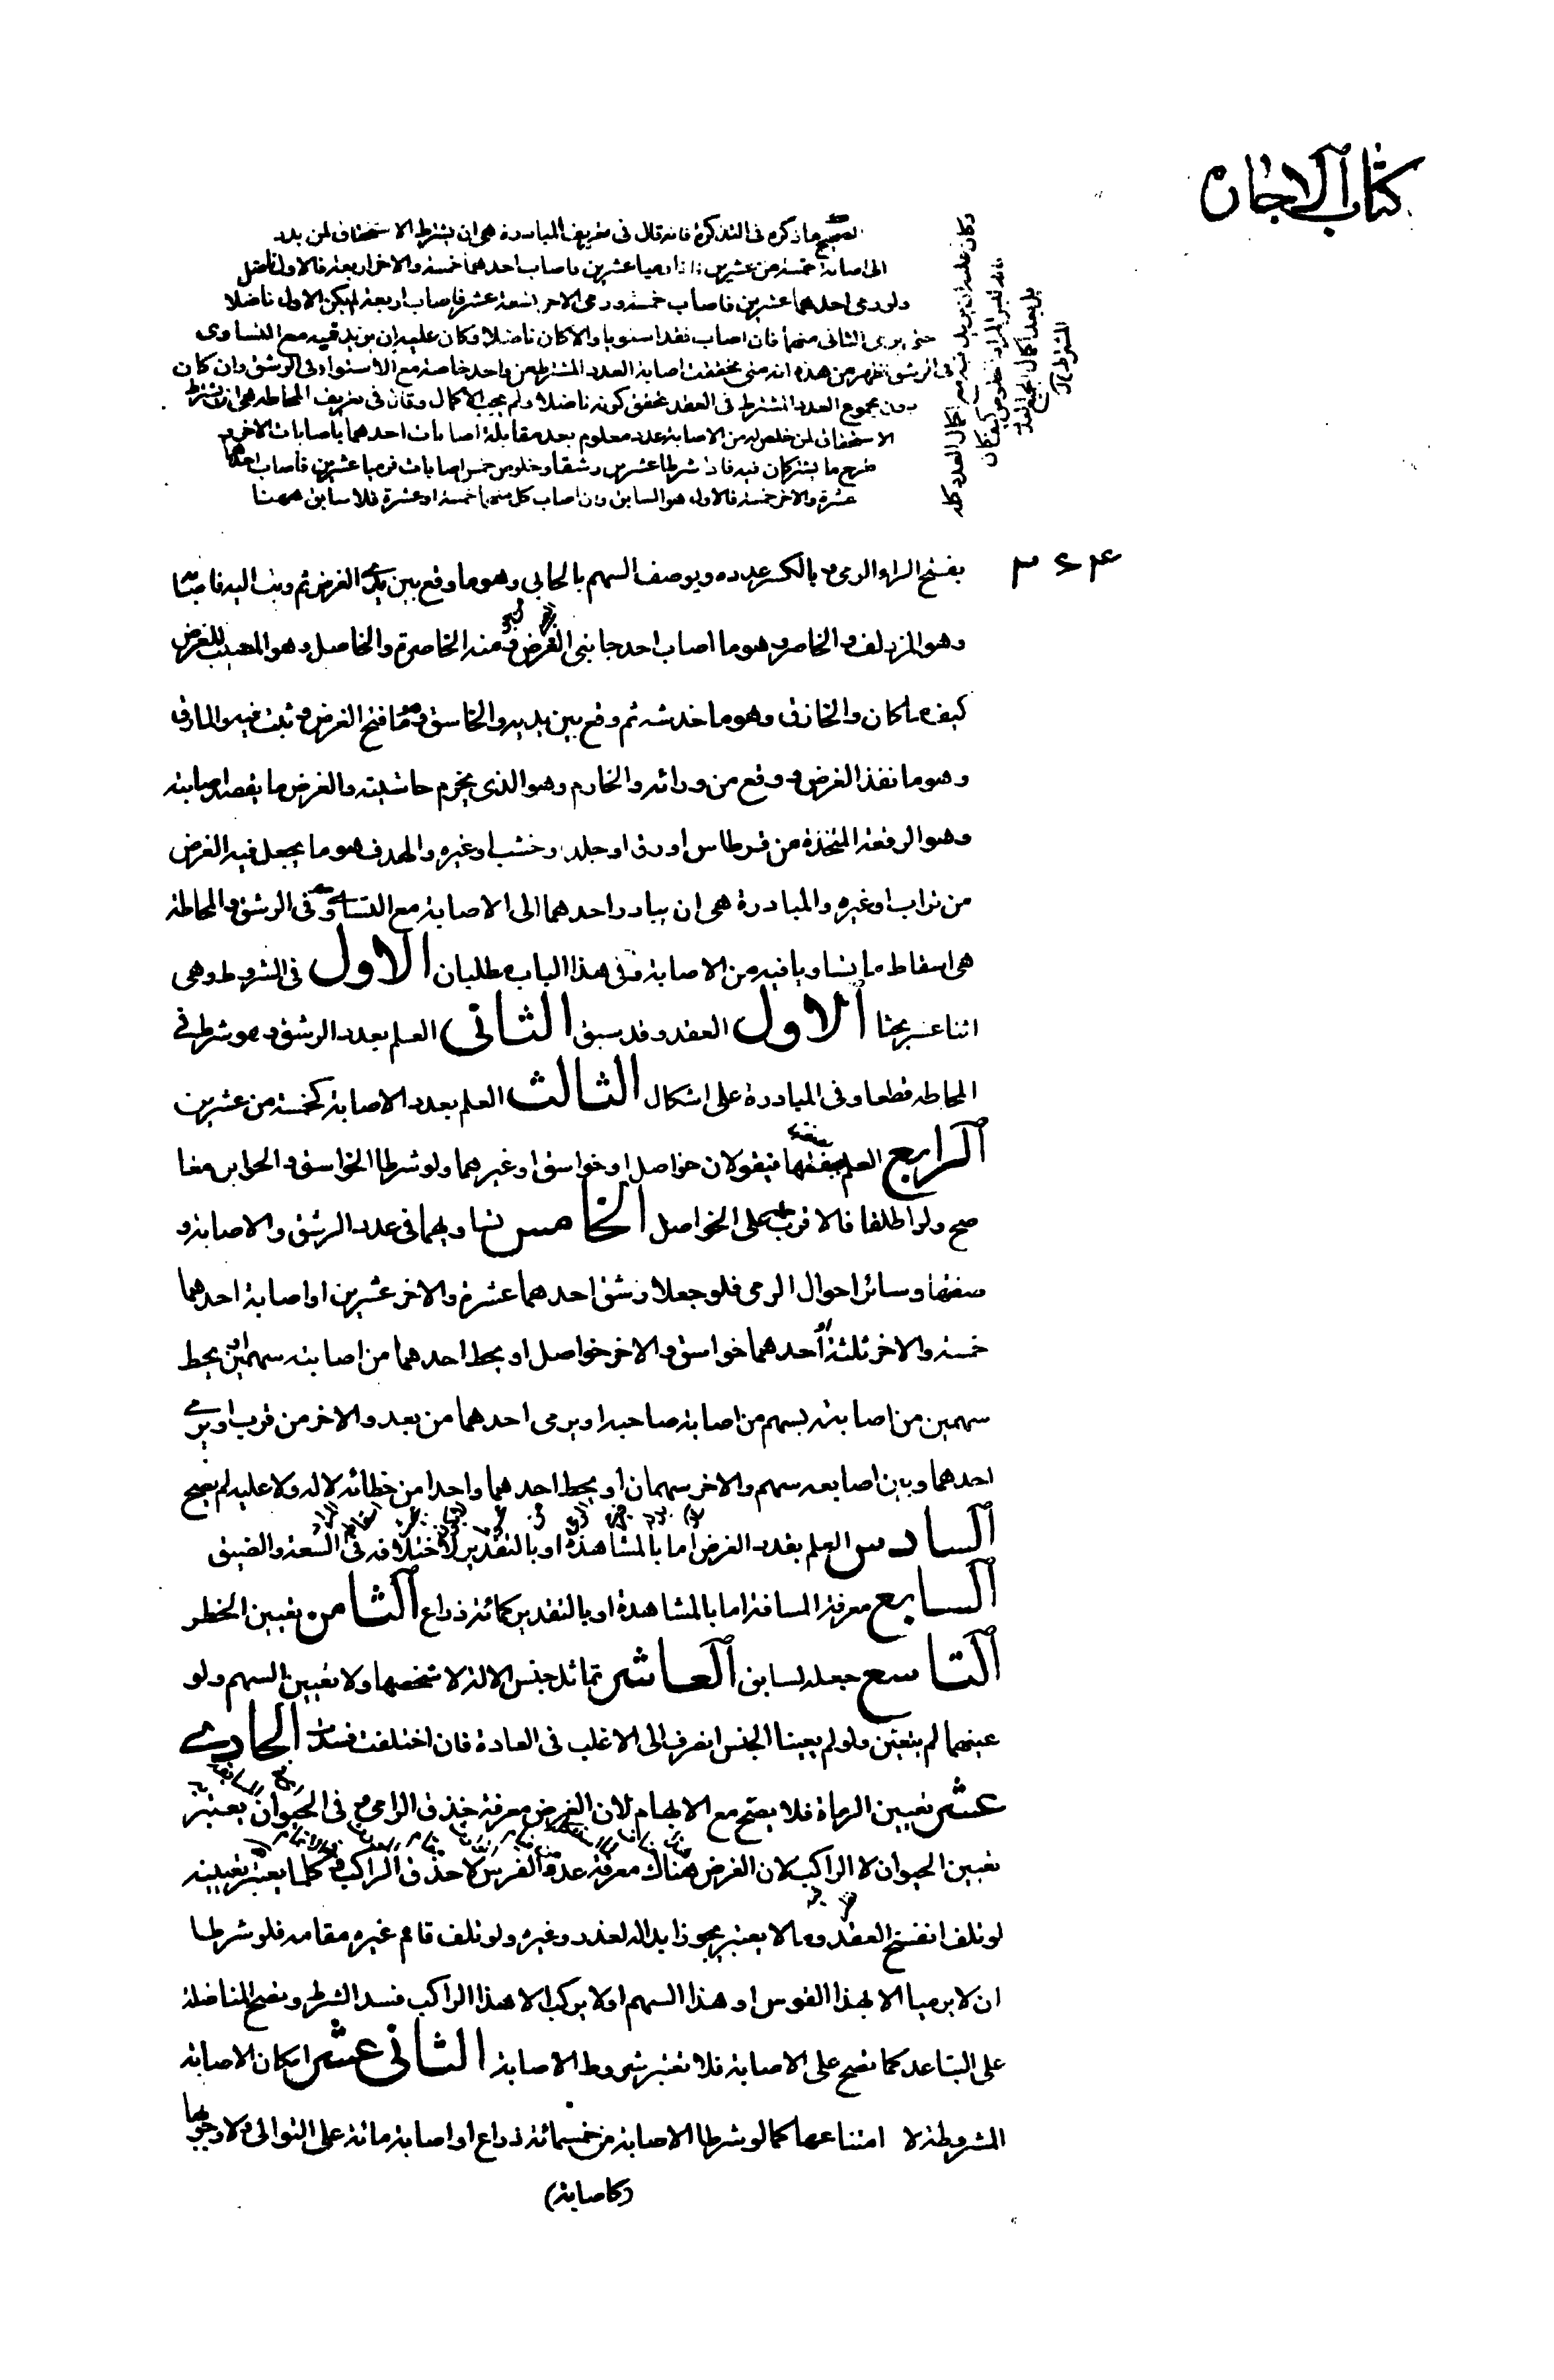 كتاب الاجارة
الصحيح ما ذكره فى التذكرة فانه قال فى تعريف المبادرة هى ان يشترط الاستحقاق لمن بدر
الى اصابة خمسة من عشرين فاذا رميا عشرين فاصاب احدهما خمسة والاخر اربعة فالاول ناضل
ولو رمى احدهما عشرين فاصاب خمسة ورمى الاخر تسعة عشر فاصاب اربعة لم يكن الاول ناضلا
حتى يرمى الثانى سهما فان اصاب فقد استويا والا كان ناضلا وكان عليه ان يزيد قيد مع التساوى
فى الرشق فظهر من هذه انه متى تحققت اصابة العدد المشترط من واحد خاصة مع الاستواء فى الرشق وان كان
بدون مجموع العدد المشترط فى العقد تحقق كونه ناضلا ولم يجب الاكمال وقال فى تعريف المحاطة هى ان يشترط
الاستحقاق لمن خلص له من الاصابة عدد معلوم بعد مقابلة اصابات احدهما باصابات الاخر و
طرح ما يشتركان فيه فاذا شرطا عشرين رشقا وخلوص خمس اصابات فرميا عشرين فاصاب احدهما
عشرة والاخر خمسة فالاول هو السابق وان اصاب كل منهما خمسة او عشرة فلا سابق ههنا
وكان عليه ان يزيد فيه بعد اكمال العدد كله
فانه ليس المراد خلوص كيف كان
بل بعد اكمال الجميع العدد
المشترط
٣٦٤
بفتح الراء الرمى وبالكسر عدده ويوصف السهم بالحابى وهو ما وقع بين يدى الغرض ثم وثب اليه فاصابه
وهو المزدلف والخاصر وهو ما اصاب احد جانبى الغرض ومنه الخاصرة والخاصل وهو المصيب للغرض
كيف ما كان والخازق وهو ما خدشه ثم وقع بين يديه والخاسق وهو ما فتح الغرض وثبت فيه والمارق
وهو ما نفذ الغرض ووقع من ورائه والخارم وهو الذى يخرم حاشيته والغرض ما يقصد اصابته
وهو الرقعة المتخذة من قرطاس او رق او جلد او خشب او غيره والهدف هو ما يجعل فيه الغرض
من تراب او غيره والمبادرة هى ان يبادر احدهما الى الاصابة مع التساوى فى الرشق والمحاطة
هى اسقاط ما تساويا فيه من الاصابة وفى هذا الباب مطلبان الاول فى الشروط وهى
اثنا عشر بحثا الاول العقد وقد سبق الثانى العلم بعدد الرشق وهو شرط فى
المحاطة قطعا وفى المبادرة على اشكال الثالث العلم بعدد الاصابة كخمسة من عشرين
الرابع العلم بصفتها فيقولان خواصل او خواسق او غيرهما ولو شرطا الخواسق والحوابى معا
صح ولو اطلقا فالاقرب حمله على الخواصل الخامس تساويهما فى عدد الرشق والاصابة و
صفتها وسائر احوال الرمى فلو جعلا رشق احدهما عشرة والاخر عشرين او اصابة احدهما
خمسة والاخر ثلثة او احدهما خواسق والاخر خواصل او يحط احدهما من اصابته سهمين او يحط
سهمين من اصابته بسهم من اصابة صاحبه او يرمى احدهما من بعد والاخر من قرب او يرمى
احدهما وبين اصابعه سهم والاخر سهمان او يحط احدهما واحدا من خطائه لا له ولا عليه لم يصح
السادس العلم بقدر الغرض اما بالمشاهدة او بالتقدير لاختلافه فى السعة والضيق
السابع معرفة المسافة اما بالمشاهدة او بالتقدير كمائة ذراع الثامن تعيين الخطر
التاسع جعله لسابق العاشر تماثل جنس الالة لا شخصها ولا تعيين السهم ولو
عينهما لم يتعين ولو لم يعينا الجنس انصرف الى الاغلب فى العادة فان اختلفت فسد الحادى
عشر تعيين الرماة فلا يصح مع الابهام لان الغرض معرفة حذق الرامى و فى الحيوان يعتبر
تعيين الحيوان لا الراكب لان الغرض هناك معرفة عدو الفرس لا حذق الراكب و كلما يعتبر تعيينه
لو تلف انفسخ العقد وما لا يعتبر يجوز ابداله لعذر وغيره ولو تلف قام غيره مقامه فلو شرطا
ان لا يرميا الا بهذا القوس او هذا السهم او لا يركب الا هذا الراكب فسد الشرط وتصح المناضلة
على التباعد كما تصح على الاصابة فلا تعتبر شروط الاصابة الثانى عشر امكان الاصابة
المشروطة لا امتناعها كما لو شرطا الاصابة من خمسمائة ذراع او اصابة مائة على التوالى ولا وجوبها
(كاصابة)